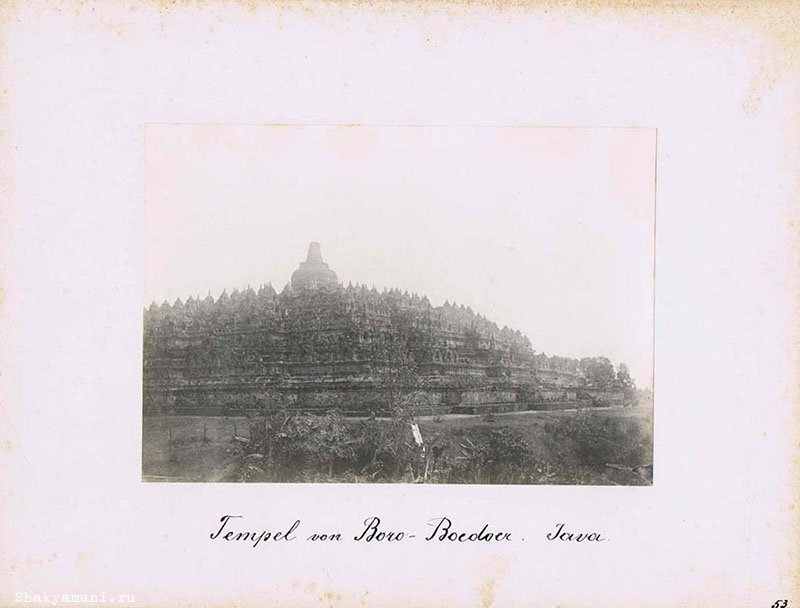 Tempel von Boro-Boedoer. Java.
Shakyamuni.ru
53